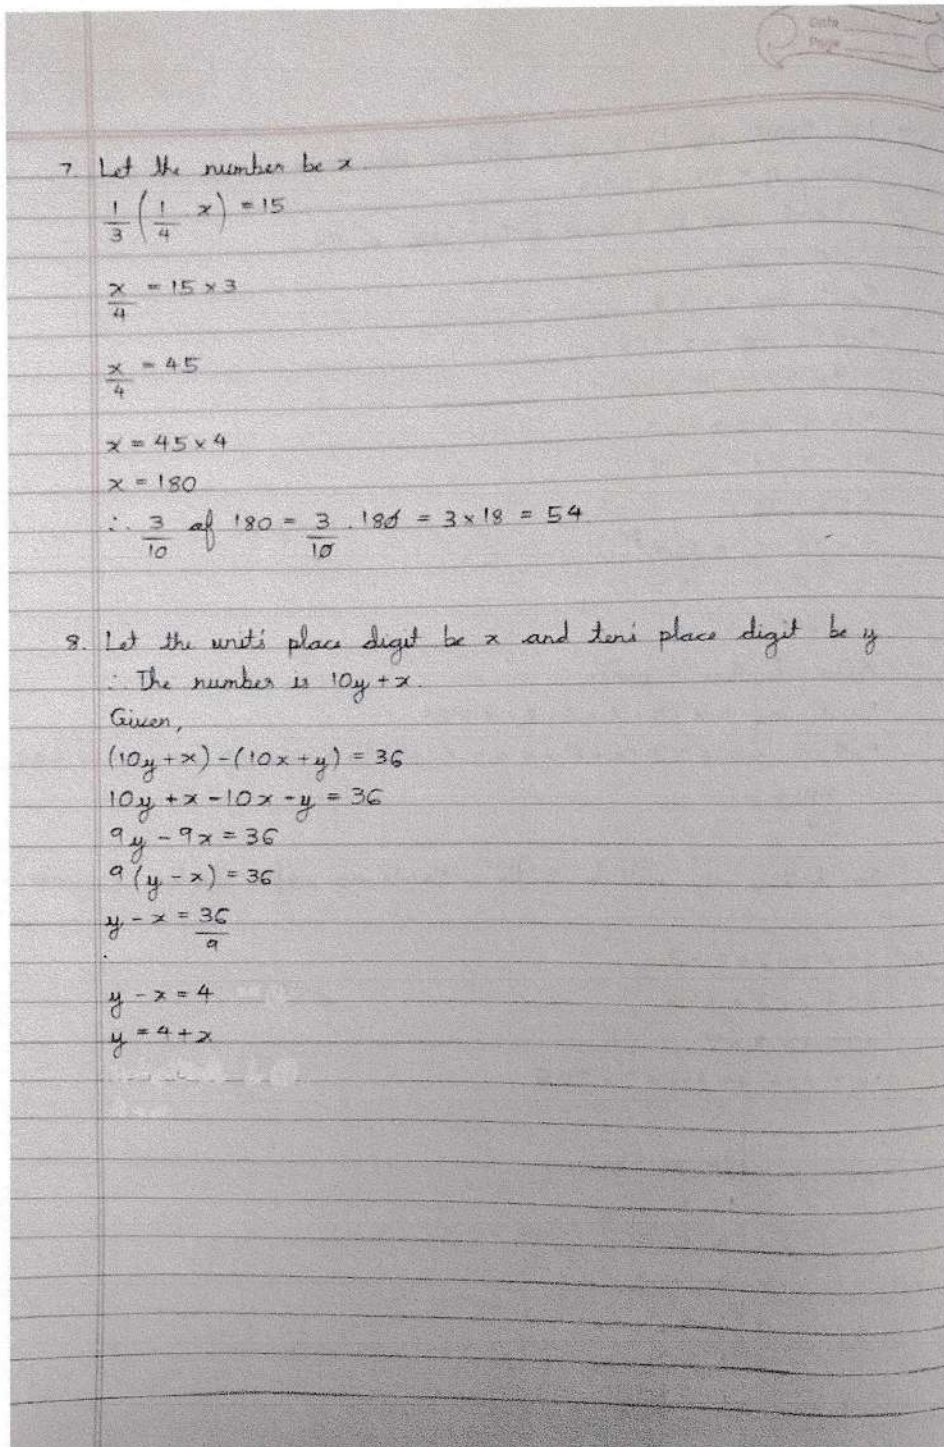 Date
Page
7 Let the number be x
1/3 (1/4 x) = 15
x/4 = 15 × 3
x/4 = 45
x = 45 × 4
x = 180
∴ 3/10 of 180 = 3/10 . 180 = 3 × 18 = 54
8. Let the unit's place digit be x and ten's place digit be y
∴ The number is 10y + x.
Given,
(10y + x) - (10x + y) = 36
10y + x - 10x - y = 36
9y - 9x = 36
9(y - x) = 36
y - x = 36/9
y - x = 4
y = 4 + x